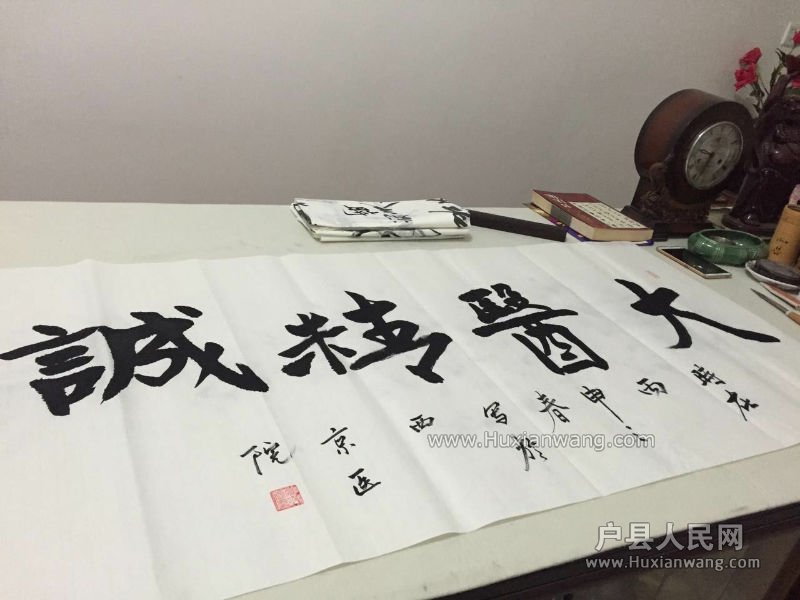 大醫精誠
時在
丙
申
春
寫於
西
京医
院
www.Huxianwang.com
户县人民网
www.Huxianwang.com